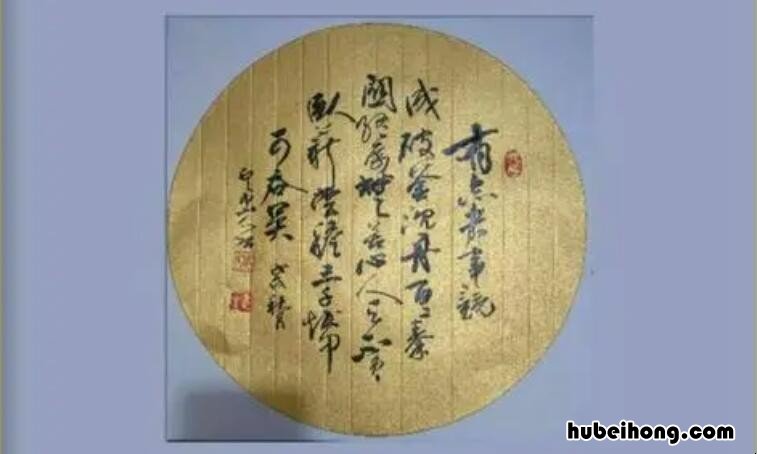 有志者事竟
成破釜沉舟百二秦
關終屬楚苦心人天不負
臥薪嘗膽三千越甲
可吞吴
hubeihong.com